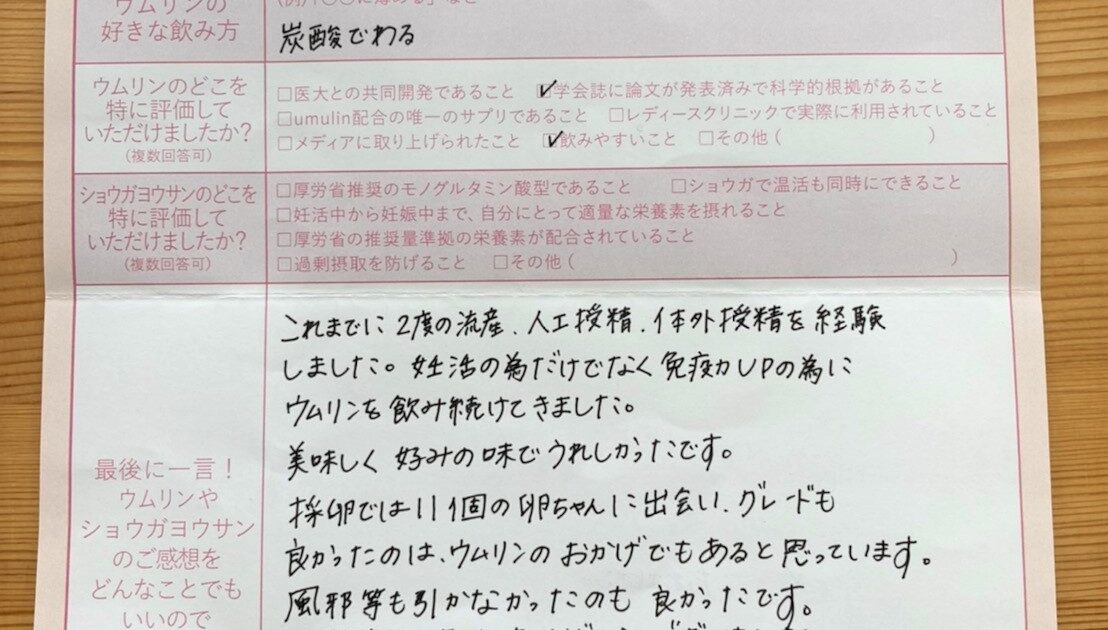 ウムリンの
好きな飲み方
炭酸でわる
ウムリンのどこを
特に評価して
いただけましたか?
(複数回答可)
□医大との共同開発であること ☑学会誌に論文が発表済みで科学的根拠があること
□umulin配合の唯一のサプリであること □レディースクリニックで実際に利用されていること
□メディアに取り上げられたこと ☑飲みやすいこと □その他( )
ショウガヨウサンのどこを
特に評価して
いただけましたか?
(複数回答可)
□厚労省推奨のモノグルタミン酸型であること □ショウガで温活も同時にできること
□妊活中から妊娠中まで、自分にとって適量な栄養素を摂れること
□厚労省の推奨量準拠の栄養素が配合されていること
□過剰摂取を防げること □その他( )
最後に一言!
ウムリンや
ショウガヨウサン
のご感想を
どんなことでも
いいので
これまでに2度の流産、人工授精、体外授精を経験
しました。妊活の為だけでなく免疫力UPの為に
ウムリンを飲み続けてきました。
美味しく好みの味でうれしかったです。
採卵では11個の卵ちゃんに出会い、グレードも
良かったのは、ウムリンのおかげでもあると思っています。
風邪等も引かなかったのも良かったです。